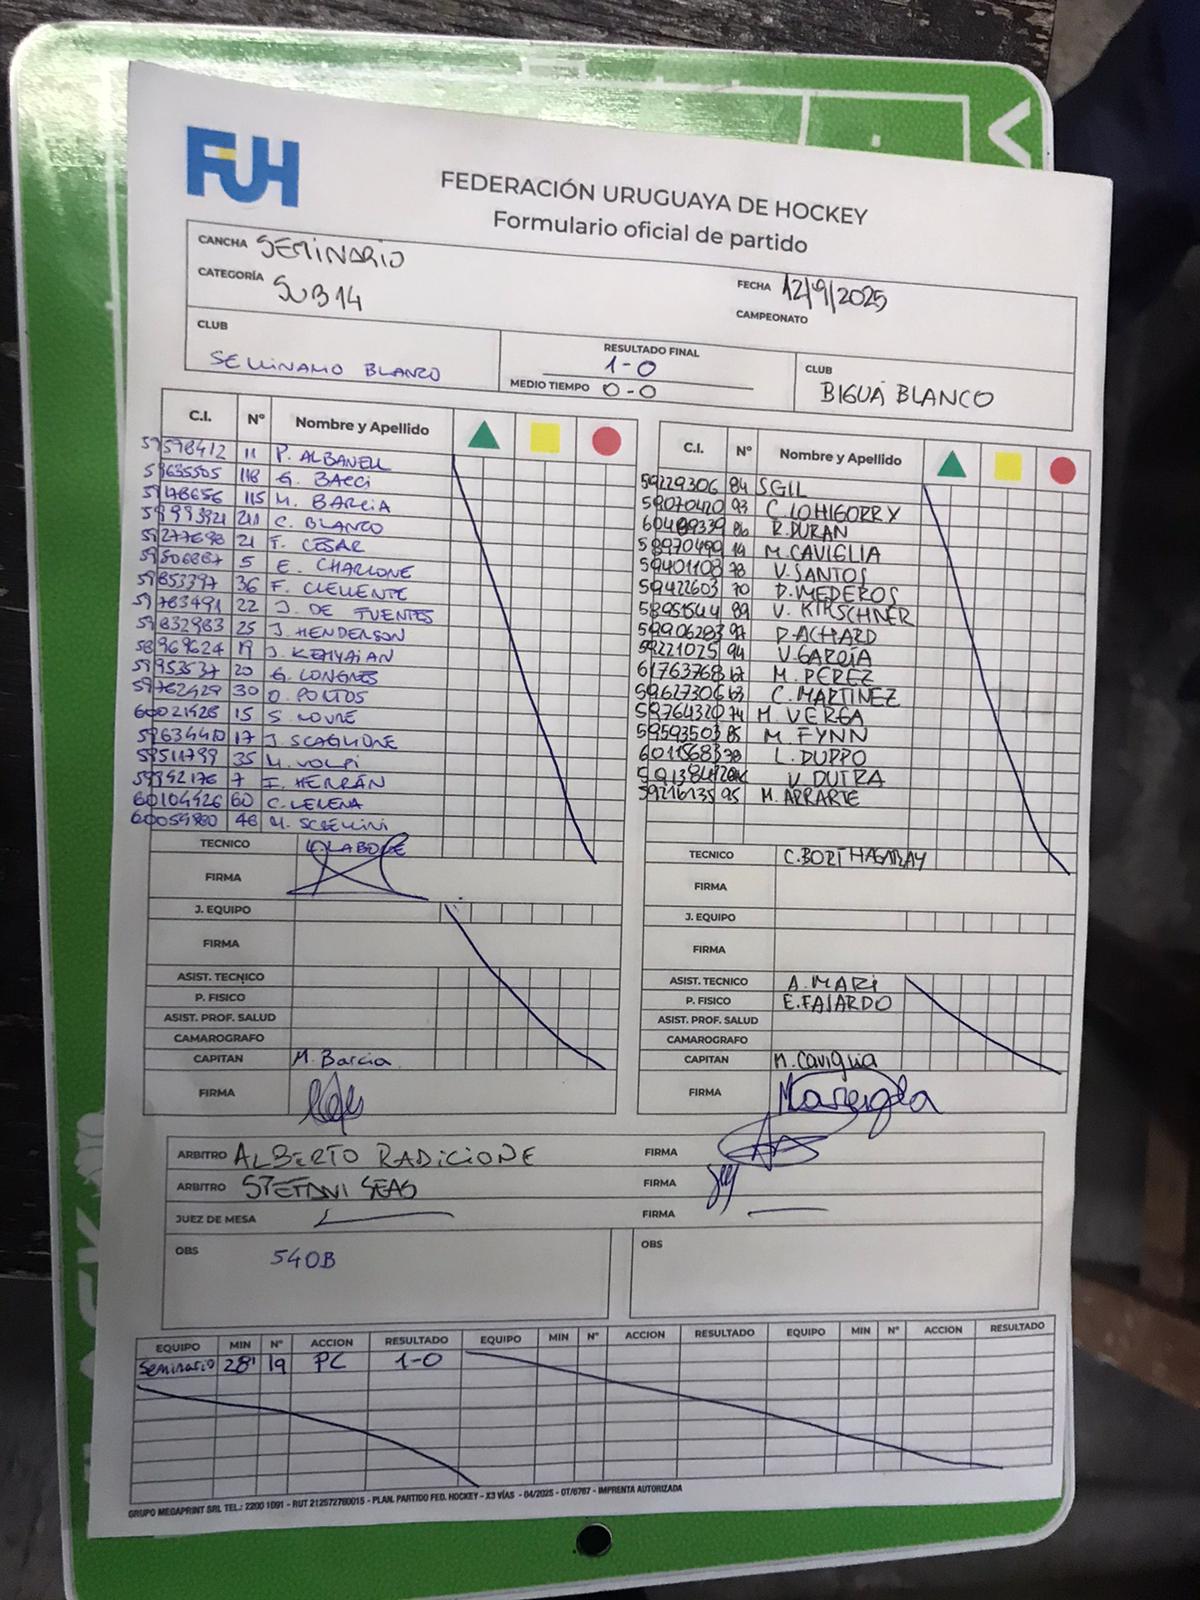 FUH
FEDERACIÓN URUGUAYA DE HOCKEY
Formulario oficial de partido
CANCHA SEMINARIO
CATEGORÍA SUB14
FECHA 12/9/2025
CAMPEONATO
CLUB
SEMINARIO BLANCO
RESULTADO FINAL
1-0
MEDIO TIEMPO 0-0
CLUB
BIGUÁ BLANCO
C.I. Nº Nombre y Apellido
11 P. ALBANELL
118 G. BACCI
115 M. BARCIA
C. BLANCO
21 F. CESAR
5 E. CHARLONE
36 F. CLEMENTE
22 J. DE FUENTES
25 J. HENDERSON
19 J. KEHYAIAN
20 G. LONGRES
30 O. PONTOS
15 S. ROVRE
17 J. SCAGLIONE
35 M. VOLPI
7 I. HERRÁN
60 C. LERENA
46 M. SCREMINI
TECNICO LABORE
FIRMA
J. EQUIPO
FIRMA
ASIST. TECNICO
P. FISICO
ASIST. PROF. SALUD
CAMAROGRAFO
CAPITAN M. Barcia
FIRMA
C.I. Nº Nombre y Apellido
59229306 84 S GIL
59070420 93 C. LOHIGORRY
86 R. DURAN
58970499 19 M. CAVIGLIA
59401108 78 V. SANTOS
59422603 70 D. MEDEROS
58951544 89 V. KIRSCHNER
D. ACHARD
59221025 94 V. GARCÍA
61763768 M. PEREZ
C. MARTINEZ
59764320 74 M. VERGA
59593503 85 M. FYNN
L. DUPPO
V. DUTRA
59216135 95 M. ARRARTE
TECNICO C. BORTHAGARAY
FIRMA
J. EQUIPO
FIRMA
ASIST. TECNICO A. MARI
P. FISICO E. FAJARDO
ASIST. PROF. SALUD
CAMAROGRAFO
CAPITAN M. Caviglia
FIRMA
ARBITRO ALBERTO RADICIONE FIRMA
ARBITRO STEFANI SEAS FIRMA
JUEZ DE MESA FIRMA
OBS 540B
OBS
EQUIPO MIN Nº ACCION RESULTADO EQUIPO MIN Nº ACCION RESULTADO EQUIPO MIN Nº ACCION RESULTADO
Seminario 28' 19 PC 1-0
GRUPO MEGAPRINT SRL TEL.: 2200 1091 - RUT 212572780015 - PLAN. PARTIDO FED. HOCKEY - X3 VÍAS - 04/2025 - OT/6767 - IMPRENTA AUTORIZADA